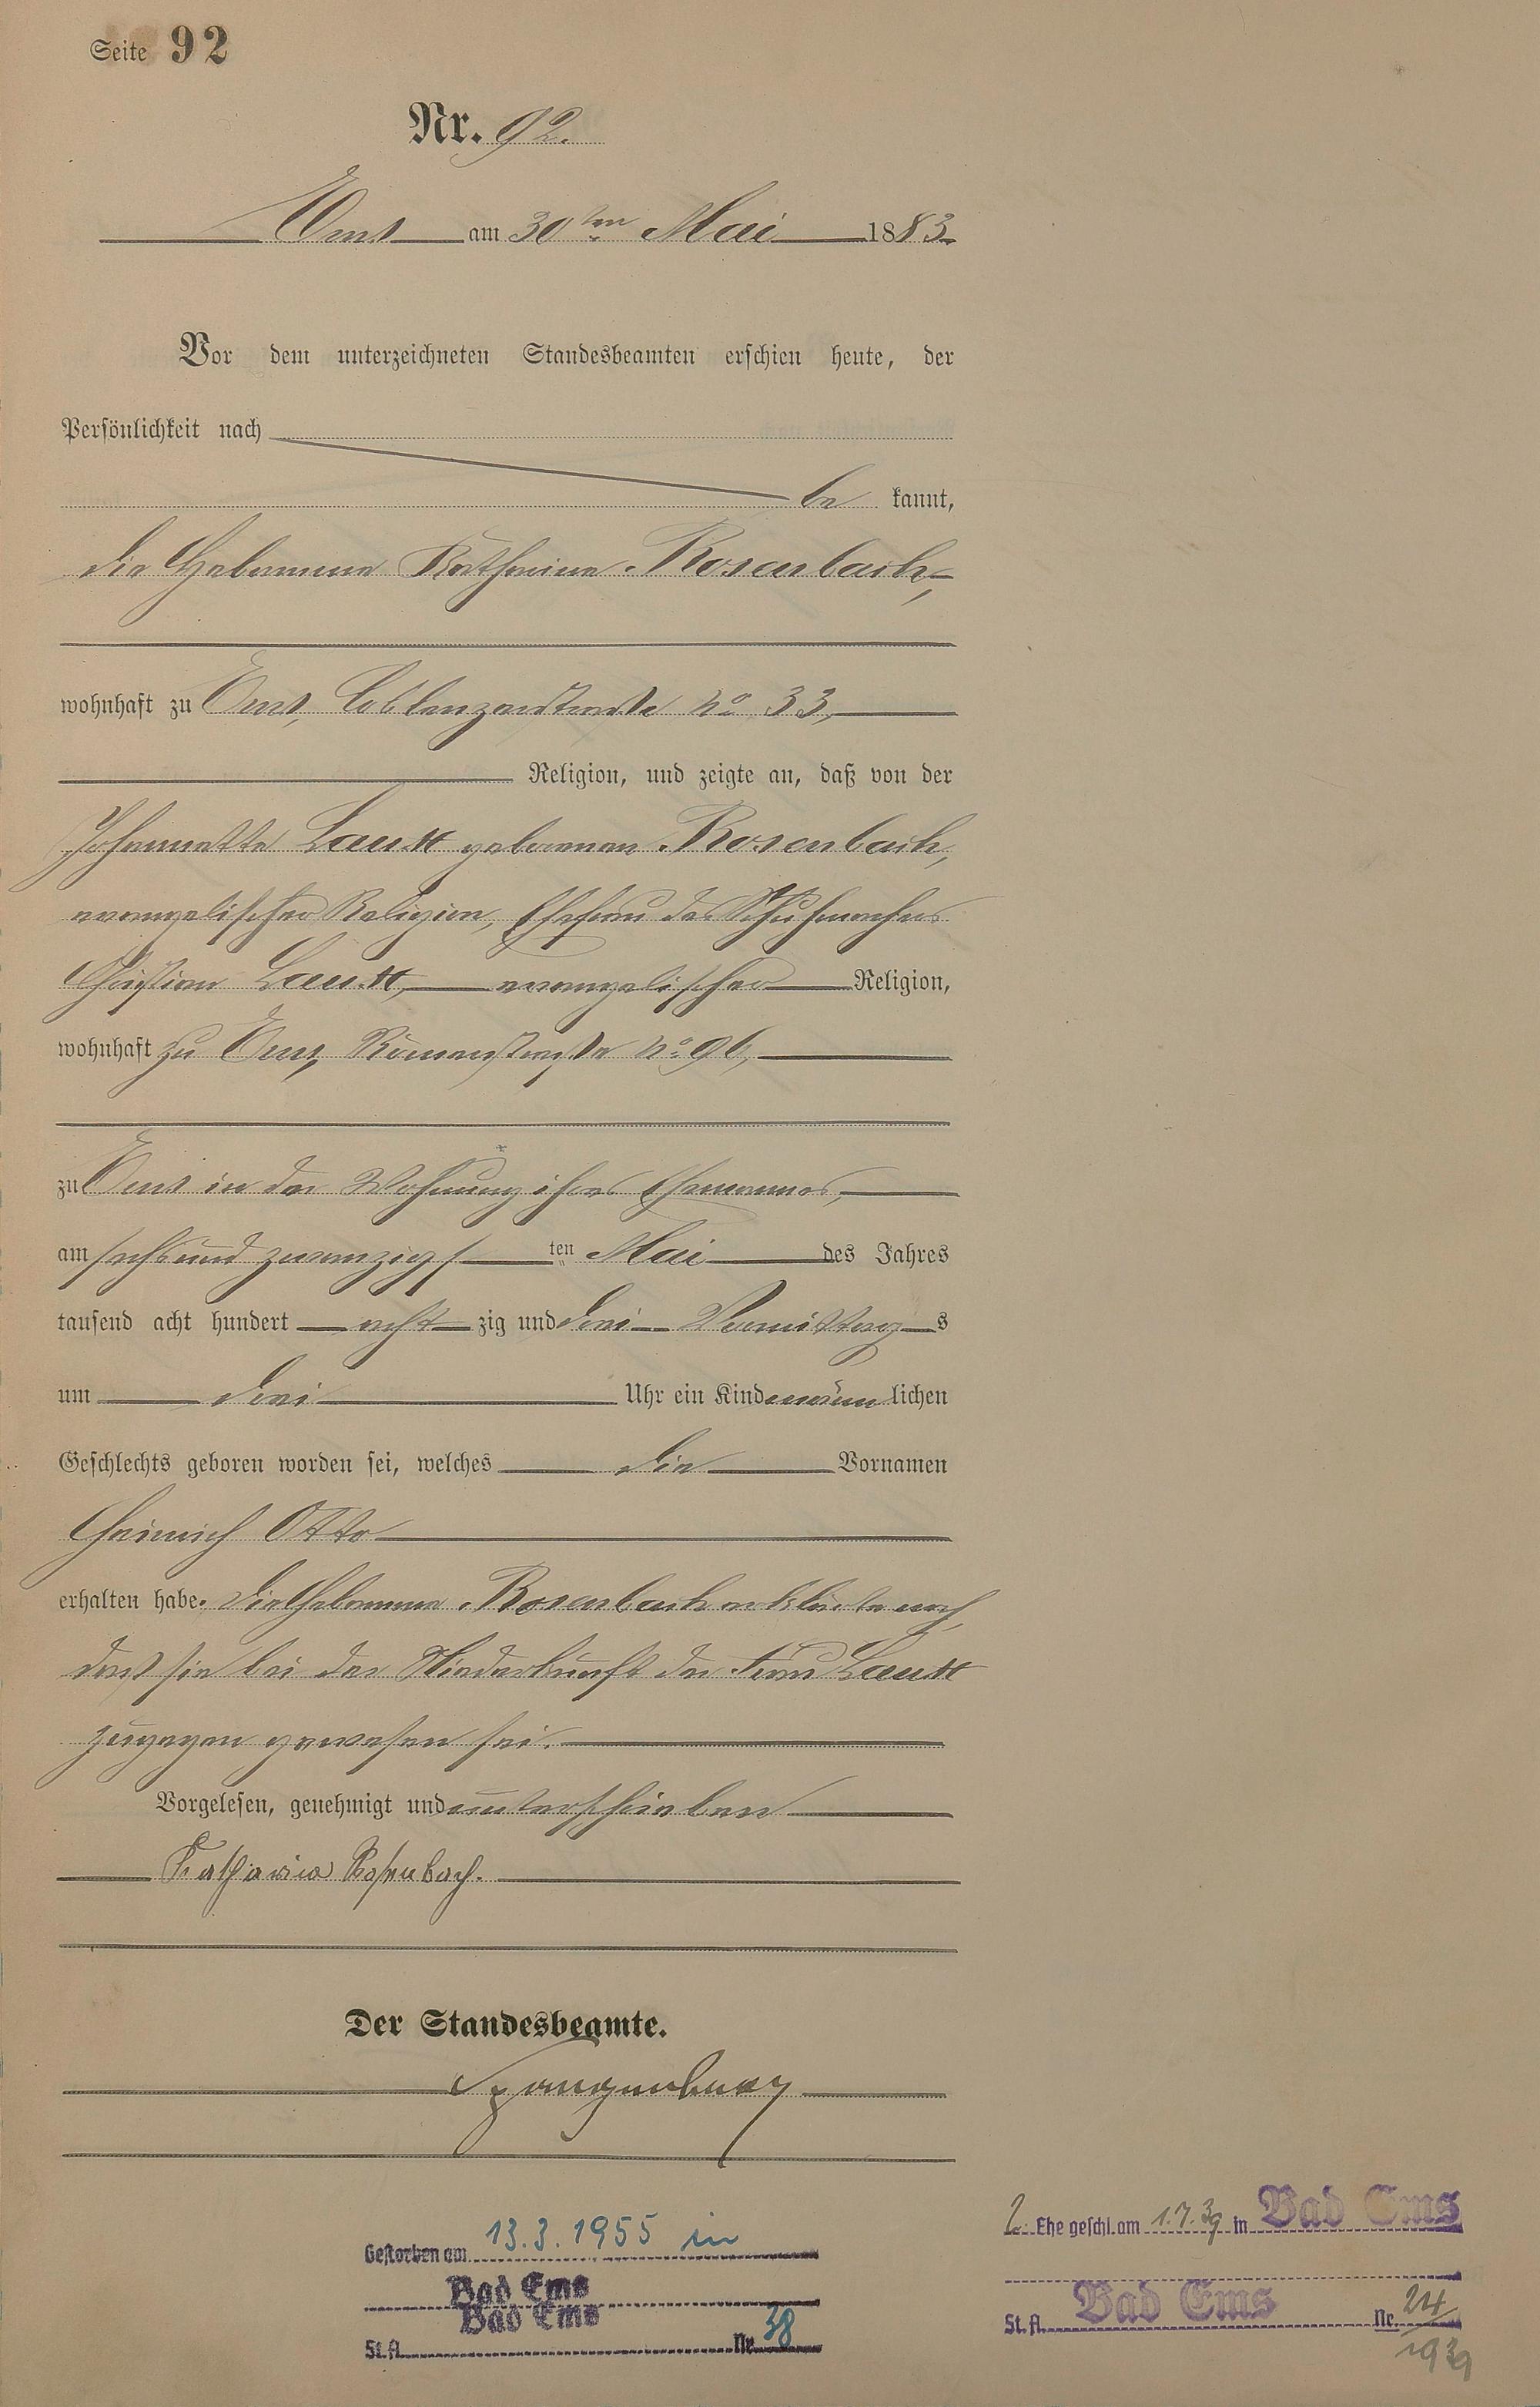 Seite 92
Nr. 92.
Ems am 30ten Mai 1883
Vor dem unterzeichneten Standesbeamten erschien heute, der
Persönlichkeit nach
be kannt,
die Hebamme Katharina Rosenbach,
wohnhaft zu Ems, Coblenzerstraße No 33,
Religion, und zeigte an, daß von der
Johannette geborenen Rosenbach,
evangelischer Religion, Ehefrau des Schuhmachers
Christian evangelischer Religion,
wohnhaft zu Ems, Römerstraße No 96,
zu Ems in der Wohnung ihres Ehemannes,
am sechsundzwanzigs ten Mai des Jahres
tausend acht hundert acht zig und drei Vormittag s
um drei Uhr ein Kind männ lichen
Geschlechts geboren worden sei, welches die Vornamen
Heinrich Otto
erhalten habe. Die Hebamme Rosenbach erklärte noch,
daß sie bei der Niederkunft der Frau
zugegen gewesen sei.
Vorgelesen, genehmigt und unterschrieben
Katharina Rosenbach.
Der Standesbeamte.
Spangenberg
Gestorben am 13.3.1955 in
Bad Ems
Bad Ems
St.A. Nr. 38
2. Ehe geschl. am 1.7.39 in Bad Ems
St.A. Bad Ems Nr. 24/1939